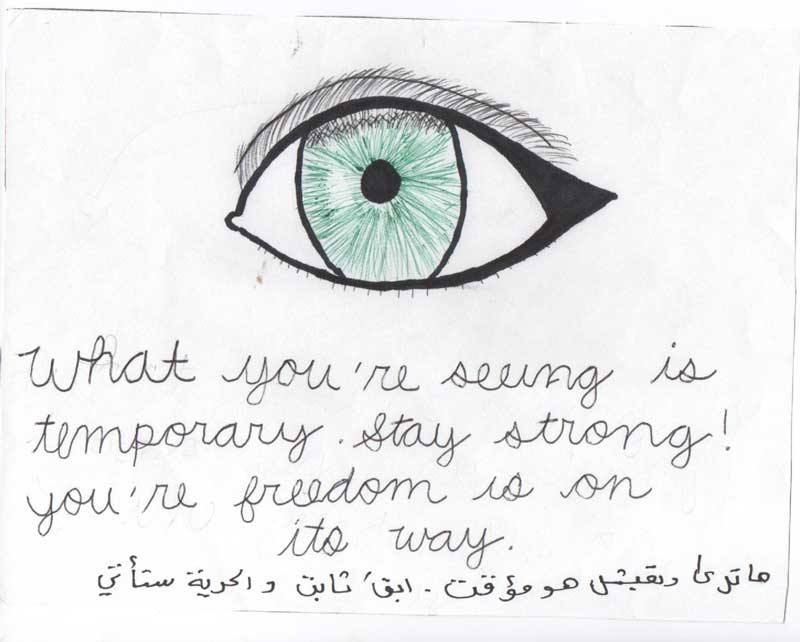 What you're seeing is
temporary. Stay strong!
you're freedom is on
its way.
ماترى هو مؤقت - ابق ثابت و الحرية ستأتي